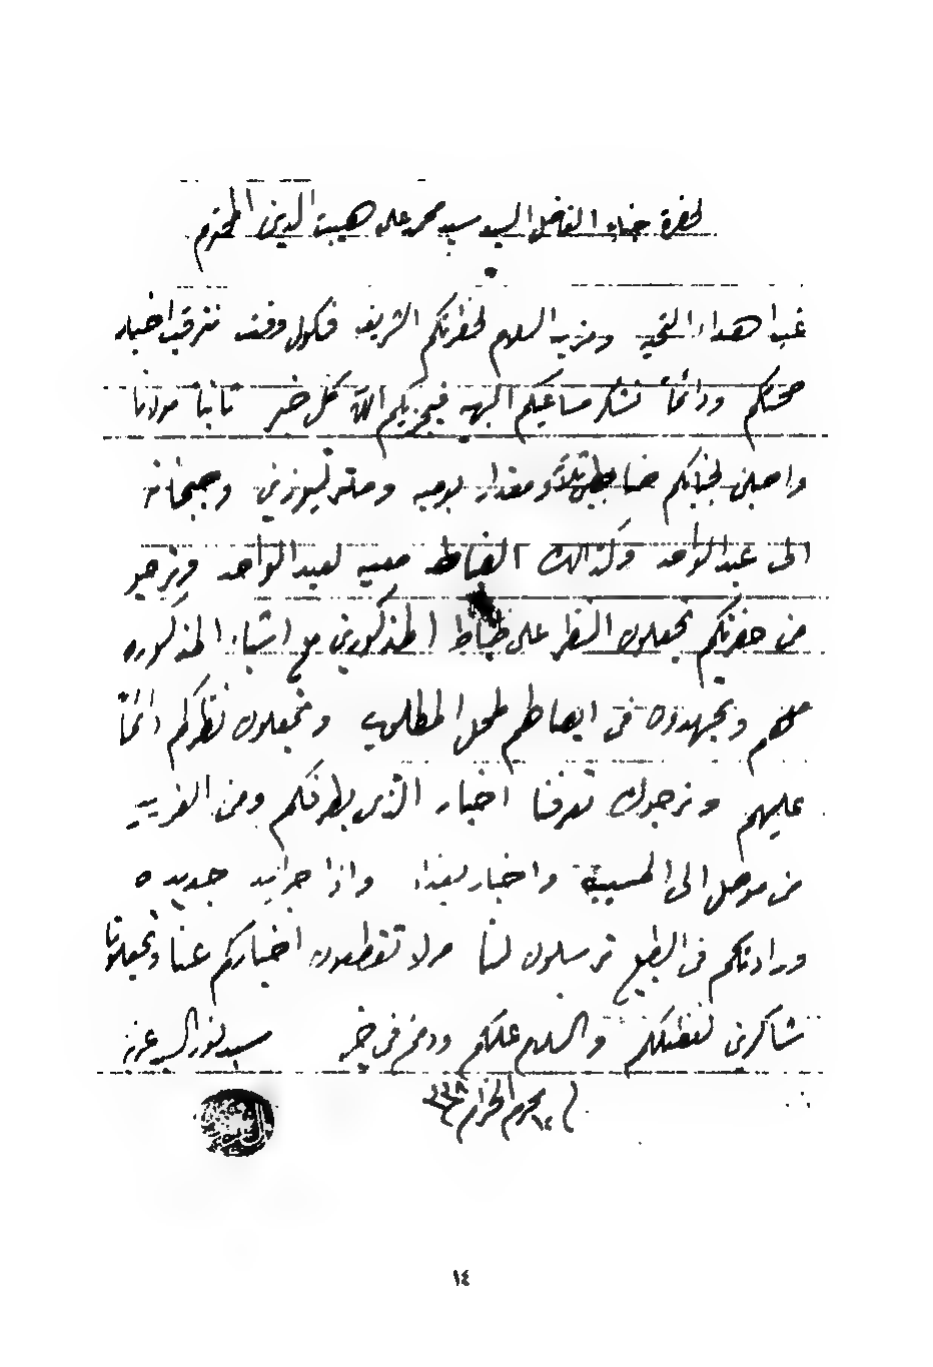 لحضرة جناب الفاضل السيد سيد محمد علي هيبت الدين المحترم
غب اهداء التحيه ومزيد السلام لحضرتكم الشريفه فكول وقت نترقب اخبار
صحتكم ودائماً نشكر مساعيكم البهيه فيجزيكم الله كل خير ثانياً مولانا
واصلين لجنابكم ضابطين ثلاثه ومقدار يوميه ومتر ليوزين وجبخانه
الى عبد الواحد وكذالك الضابط معيه لعبد الواحد ونرجو
من حضرتكم تجعلون النظر على ضباط المذكورين مع اشياء المذكوره
معهم وتجهدون في ايصالهم لمحل المطلوب وتجعلون نظركم دائماً
عليهم ونرجوك تعرفنا اخبار الذي بطرفكم ومن الغربيه
من موصل الى المسيب واخبار بغداد واذا جرايد جديده
ورادتكم في الطبع ترسلون لنا ولا تقطعون اخباركم عنا وتجعلونا
شاكرين لفضلكم والسلام عليكم ودمتم في خير سيد نور السيد عزيز
محرم الحرام
١٤